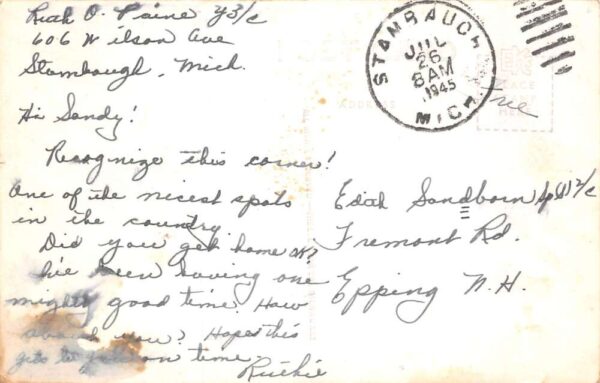 Ruth O. Paine Y3/c
606 Wilson Ave
Stambaugh, Mich.
STAMBAUGH
JUL
26
8AM
1945
MICH.
Free
PLACE
HERE
ADDRESS
Hi Sandy!
Recognize this corner!
One of the nicest spots
in the country.
Did you get home ok?
I've been having one
mighty good time. How
about you? Hope this
gets to you on time.
Ruthie
Edith Sandborn Sp(S)2/c
Fremont Rd.
Epping N.H.